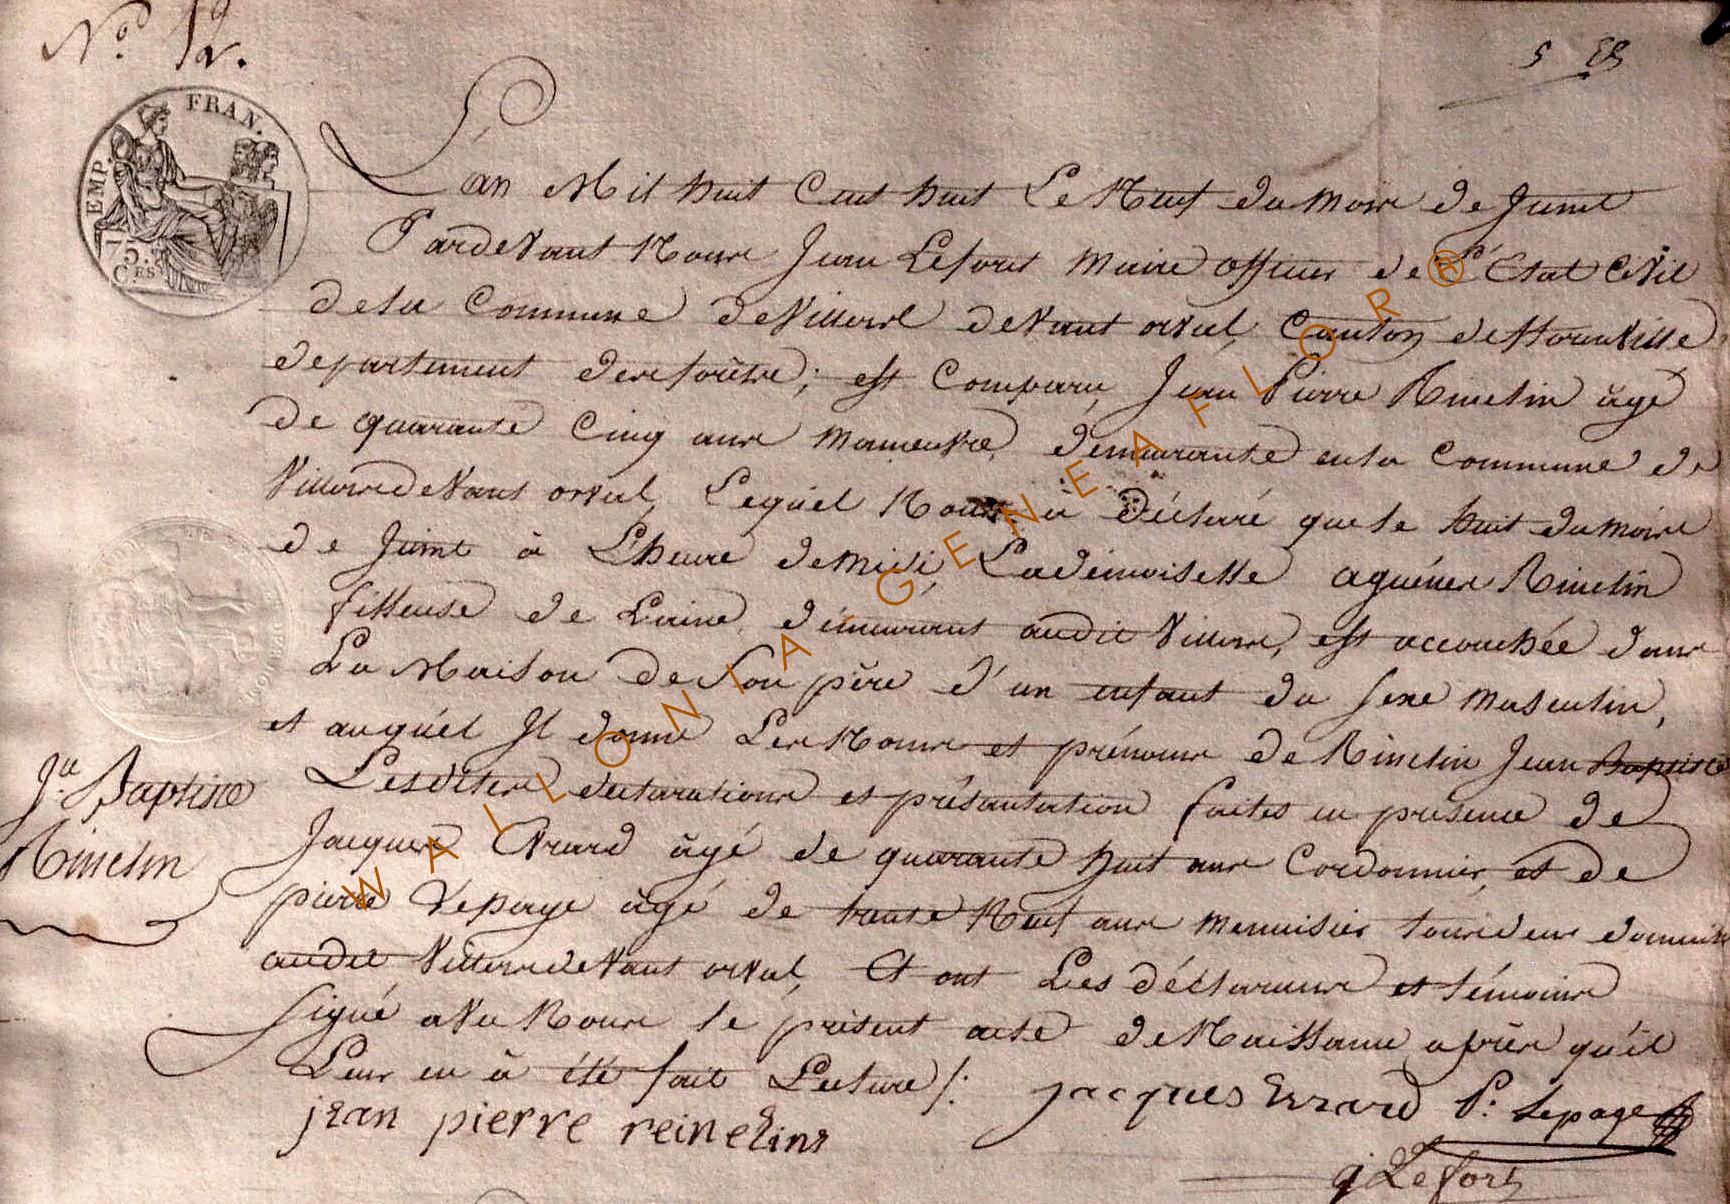 N.º 12.
5 E8
EMP. FRAN.
75.
C.ES
L'an Mil huit Cent huit Le Neuf du Mois de Juin
Pardevant Nous Jean Lefort Maire officier de l'Etat Civil
de la Commune de Villers devant orval, Canton de florenville
departement des forêts; est Comparu, Jean Pierre Rinclin âgé
de quarante Cinq ans manœuvre, démeurante en la Commune de
Villers devant orval, Lequel Nous à Déclaré que le huit du Mois
de Juin à L'heure de Midi, La démoiselle agnénes Rinclin
filleuse de Laine, démeurant audit Villers, est accouchée dans
La Maison de Son père d'un enfant du sexe masculin,
et auquél Il donne Les Noms et prénoms de Rinclin Jean Baptiste
J.n Baptiste
Rinclin
Lesdites déclarations et présantation faites en presence de
Jacques Erard âgé de quarante huit ans Cordonnier, et de
pierre Lépage âgé de trente Neuf ans menuisier tous deux
audit Villers devant orval, Et ont Les déclarans et témoins
signé avec Nous le présent acte de Naissance après qu'il
Leur en à été fait Lecture /:
jacques Errard P: Lepage
jean pierre reineline
j Lefort
WALLONIA GENEAFLOR®